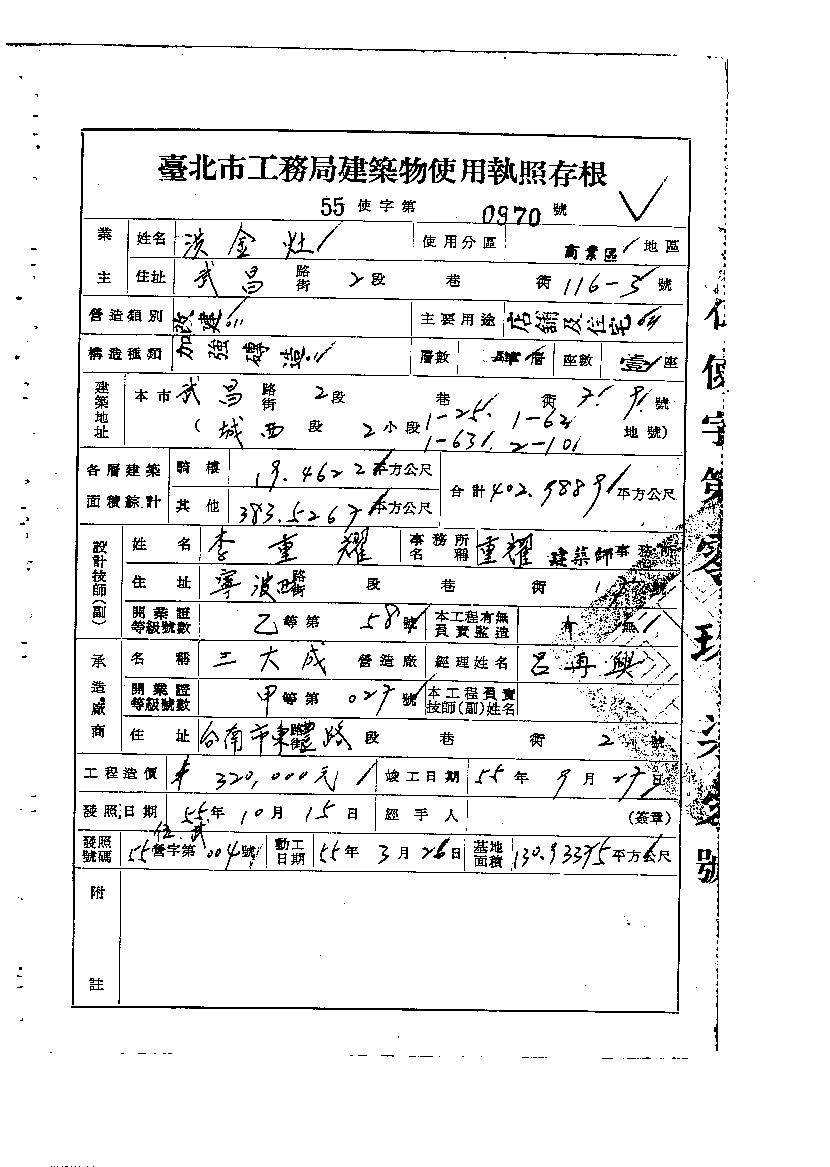 臺北市工務局建築物使用執照存根
55 使字第 0970 號
業主 姓名 洪金灶 使用分區 商業區 地區
住址 武昌 路街 2段 巷 衖 116-5 號
營造類別 改建 主要用途 店舖及住宅
構造種類 加強磚造 層數 座數 壹 座
建築地址 本市 武昌 路街 2段 巷 衖 號
(城西 段 2 小段 1-25. 1-62 1-63. 2-10 地號)
各層建築面積綜計 騎樓 19.4622 平方公尺 合計 402.9889 平方公尺
其他 383.5267 平方公尺
設計技師(副) 姓名 李重耀 事務所名稱 重耀 建築師事務所
住址 寧波西 路街 段 巷 衖
開業證等級號數 乙等第 58 號 本工程有無負責監造 有 無
承造廠商 名稱 三大成 營造廠 經理姓名 呂再興
開業證等級號數 甲等第 027 號 本工程負責技師(副)姓名
住址 台南市東 路街 路 段 巷 衖 2 號
工程造價 320,000元 竣工日期 55年9月27日
發照日期 55年10月15日 經手人 (簽章)
發照號碼 55營字第004號 動工日期 55年3月26日 基地面積 130.93375 平方公尺
附註
使字第零玖 號